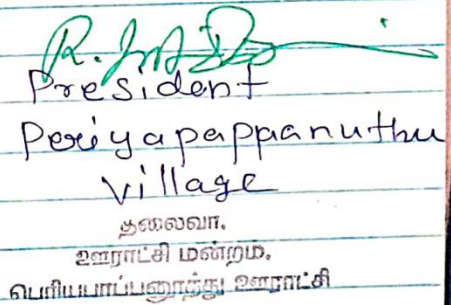 President
Periyapappanuthu
village
தலைவர்.
ஊராட்சி மன்றம்,
பெரியபாப்பனூத்து ஊராட்சி